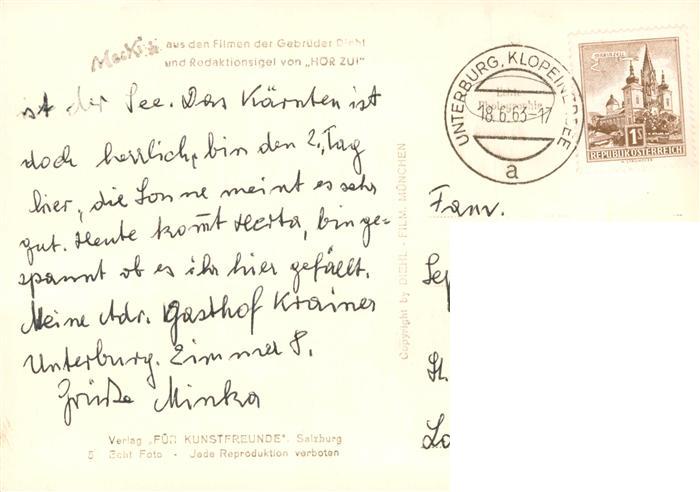 Mecki aus den Filmen der Gebrüder Diehl
und Redaktionsigel von „HÖR ZU!"
ist der See. Das Kärnten ist
doch herrlich, bin den 2. Tag
hier, die Sonne meint es sehr
gut. Heute kommt Herta, bin ge-
spannt ob es ihr hier gefällt.
Meine Adr. Gasthof Krainer
Unterburg. Zimmer 8.
Grüße Minka
Verlag „FÜR KUNSTFREUNDE", Salzburg
Echt Foto - Jede Reproduktion verboten
Copyright by DIEHL-FILM, MÜNCHEN
UNTERBURG, KLOPEINERSEE
18.6.63-17
a
MARIAZELL
1S
REPUBLIK ÖSTERREICH
Fam.